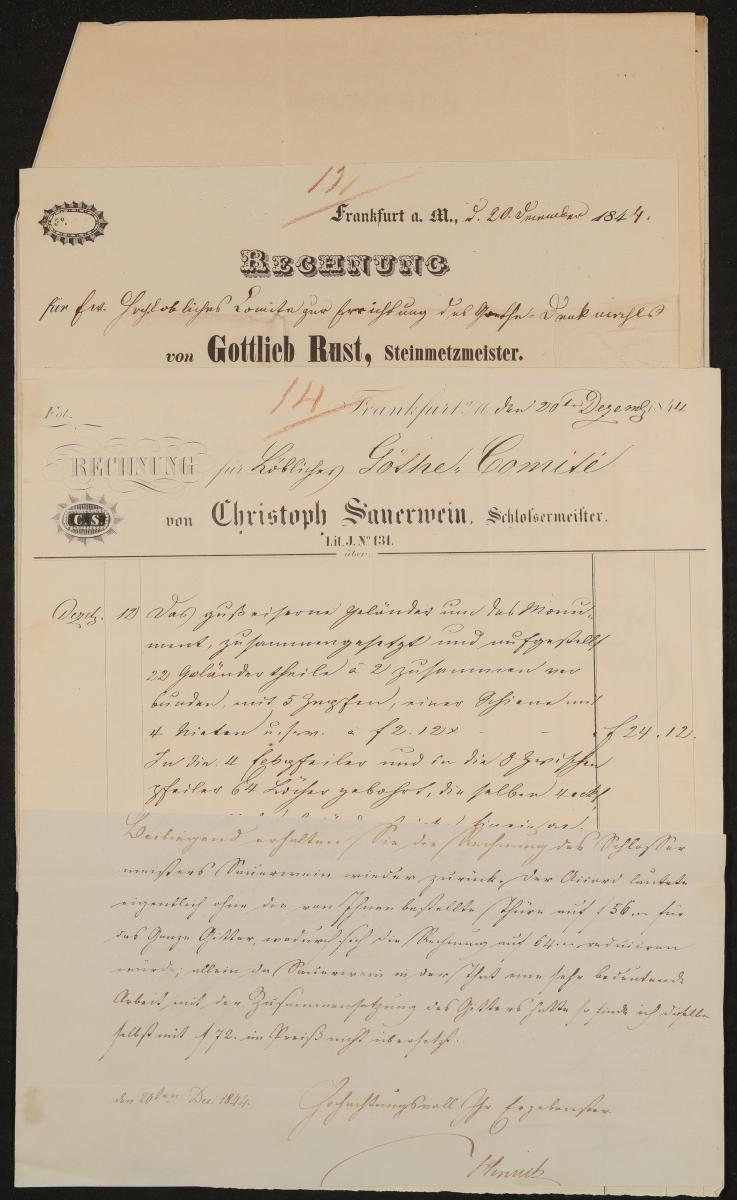 12
Fo.
Frankfurt a. M., d. 20. Dezember 1844.
RECHNUNG
für Ew. Hochlöbliches Comite zur Errichtung des Goethe-Denkmahls
von Gottlieb Rust, Steinmetzmeister.
14
Fol.
Frankfurt a. M. den 20ten Dezemb. 1844
RECHNUNG für Löbliches Göthe-Comité
C. S.
von Christoph Sauerwein, Schlossermeister.
Lit. J. No 131.
über
Dezeb. 12 Das gußeiserne Geländer um das Monu-
ment, zusammengesetzt und aufgestellt
22 Geländertheile à 2 zusammen ver
bunden, mit 5 Zapfen, einer Schiene mit
4 Nieten u.s.w. à f 2. 12x - - f 24. 12.
In die 4 Eckpfeiler und in die 8 Zwischen
pfeiler 64 Löcher gebohrt, dieselben 4 eckt
Beiliegend erhalten Sie die Rechnung des Schlosser
meisters Sauerwein wieder zurück. Der Accord lautete
eigentlich ohne die von Ihnen bestellte Thüre auf f 56 für
das Ganze Gitter, wodurch sich die Rechnung auf 64 reduciren
würde; allein da Sauerwein in der That eine sehr bedeutende
Arbeit mit der Zusammensetzung des Gitters hatte so finde ich dieselbe
selbst mit f 72. im Preiß nicht übersetzt.
den 20ten Dec. 1844.
Hochachtungsvoll Ihr Ergebenster